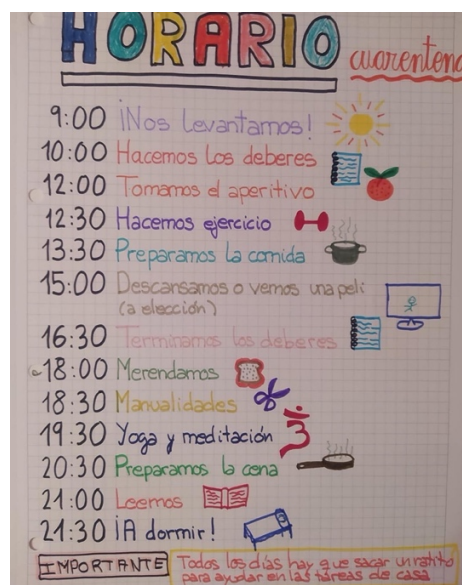 HORARIO cuarentena
9:00 ¡Nos levantamos!
10:00 Hacemos los deberes
12:00 Tomamos el aperitivo
12:30 Hacemos ejercicio
13:30 Preparamos la comida
15:00 Descansamos o vemos una peli
(a elección)
16:30 Terminamos los deberes
18:00 Merendamos
18:30 Manualidades
19:30 Yoga y meditación
20:30 Preparamos la cena
21:00 Leemos
21:30 ¡A dormir!
IMPORTANTE Todos los días hay que sacar un ratito
para ayudar en las tareas de casa